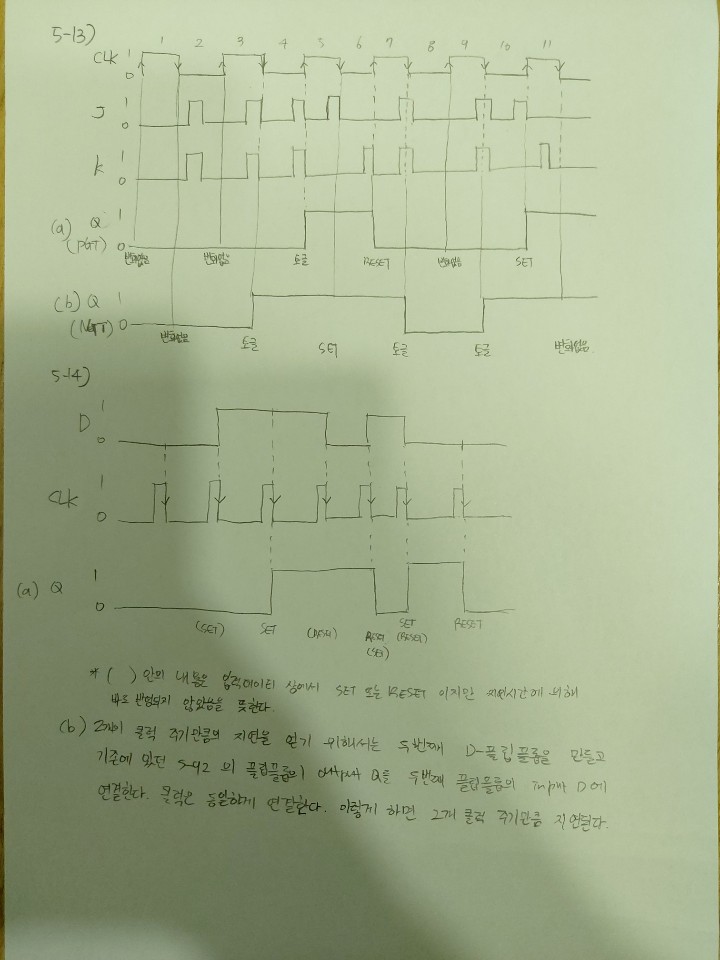 5-13)
1 2 3 4 5 6 7 8 9 10 11
CLK 1
0
J 1
0
K 1
0
(a) Q 1
(PGT) 0
변화없음 변화없음 토글 RESET 변화없음 SET
(b) Q 1
(NGT) 0
변화없음 토글 SET 토글 토글 변화없음
5-14)
D 1
0
CLK 1
0
(a) Q 1
0
(SET) SET RESET SET RESET
(SET) (RESET)
* ( ) 안의 내용은 입력데이터 상에서 SET 또는 RESET 이지만 지연시간에 의해
바로 반영되지 않았음을 뜻한다.
(b) 2개의 클럭 주기만큼의 지연을 얻기 위해서는 두번째 D-플립플롭을 만들고
기존에 있던 5-92 의 플립플롭의 output Q를 두번째 플립플롭의 input D에
연결한다. 클럭은 동일하게 연결한다. 이렇게 하면 2개 클럭 주기만큼 지연된다.